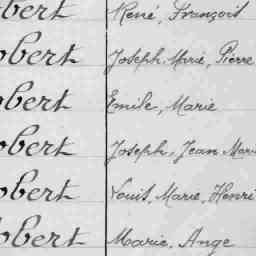 bert René, François
obert Joseph, Marie, Pierre
obert Emile, Marie
obert Joseph, Jean Mari
obert Louis, Marie, Henri
obert Marie, Ange